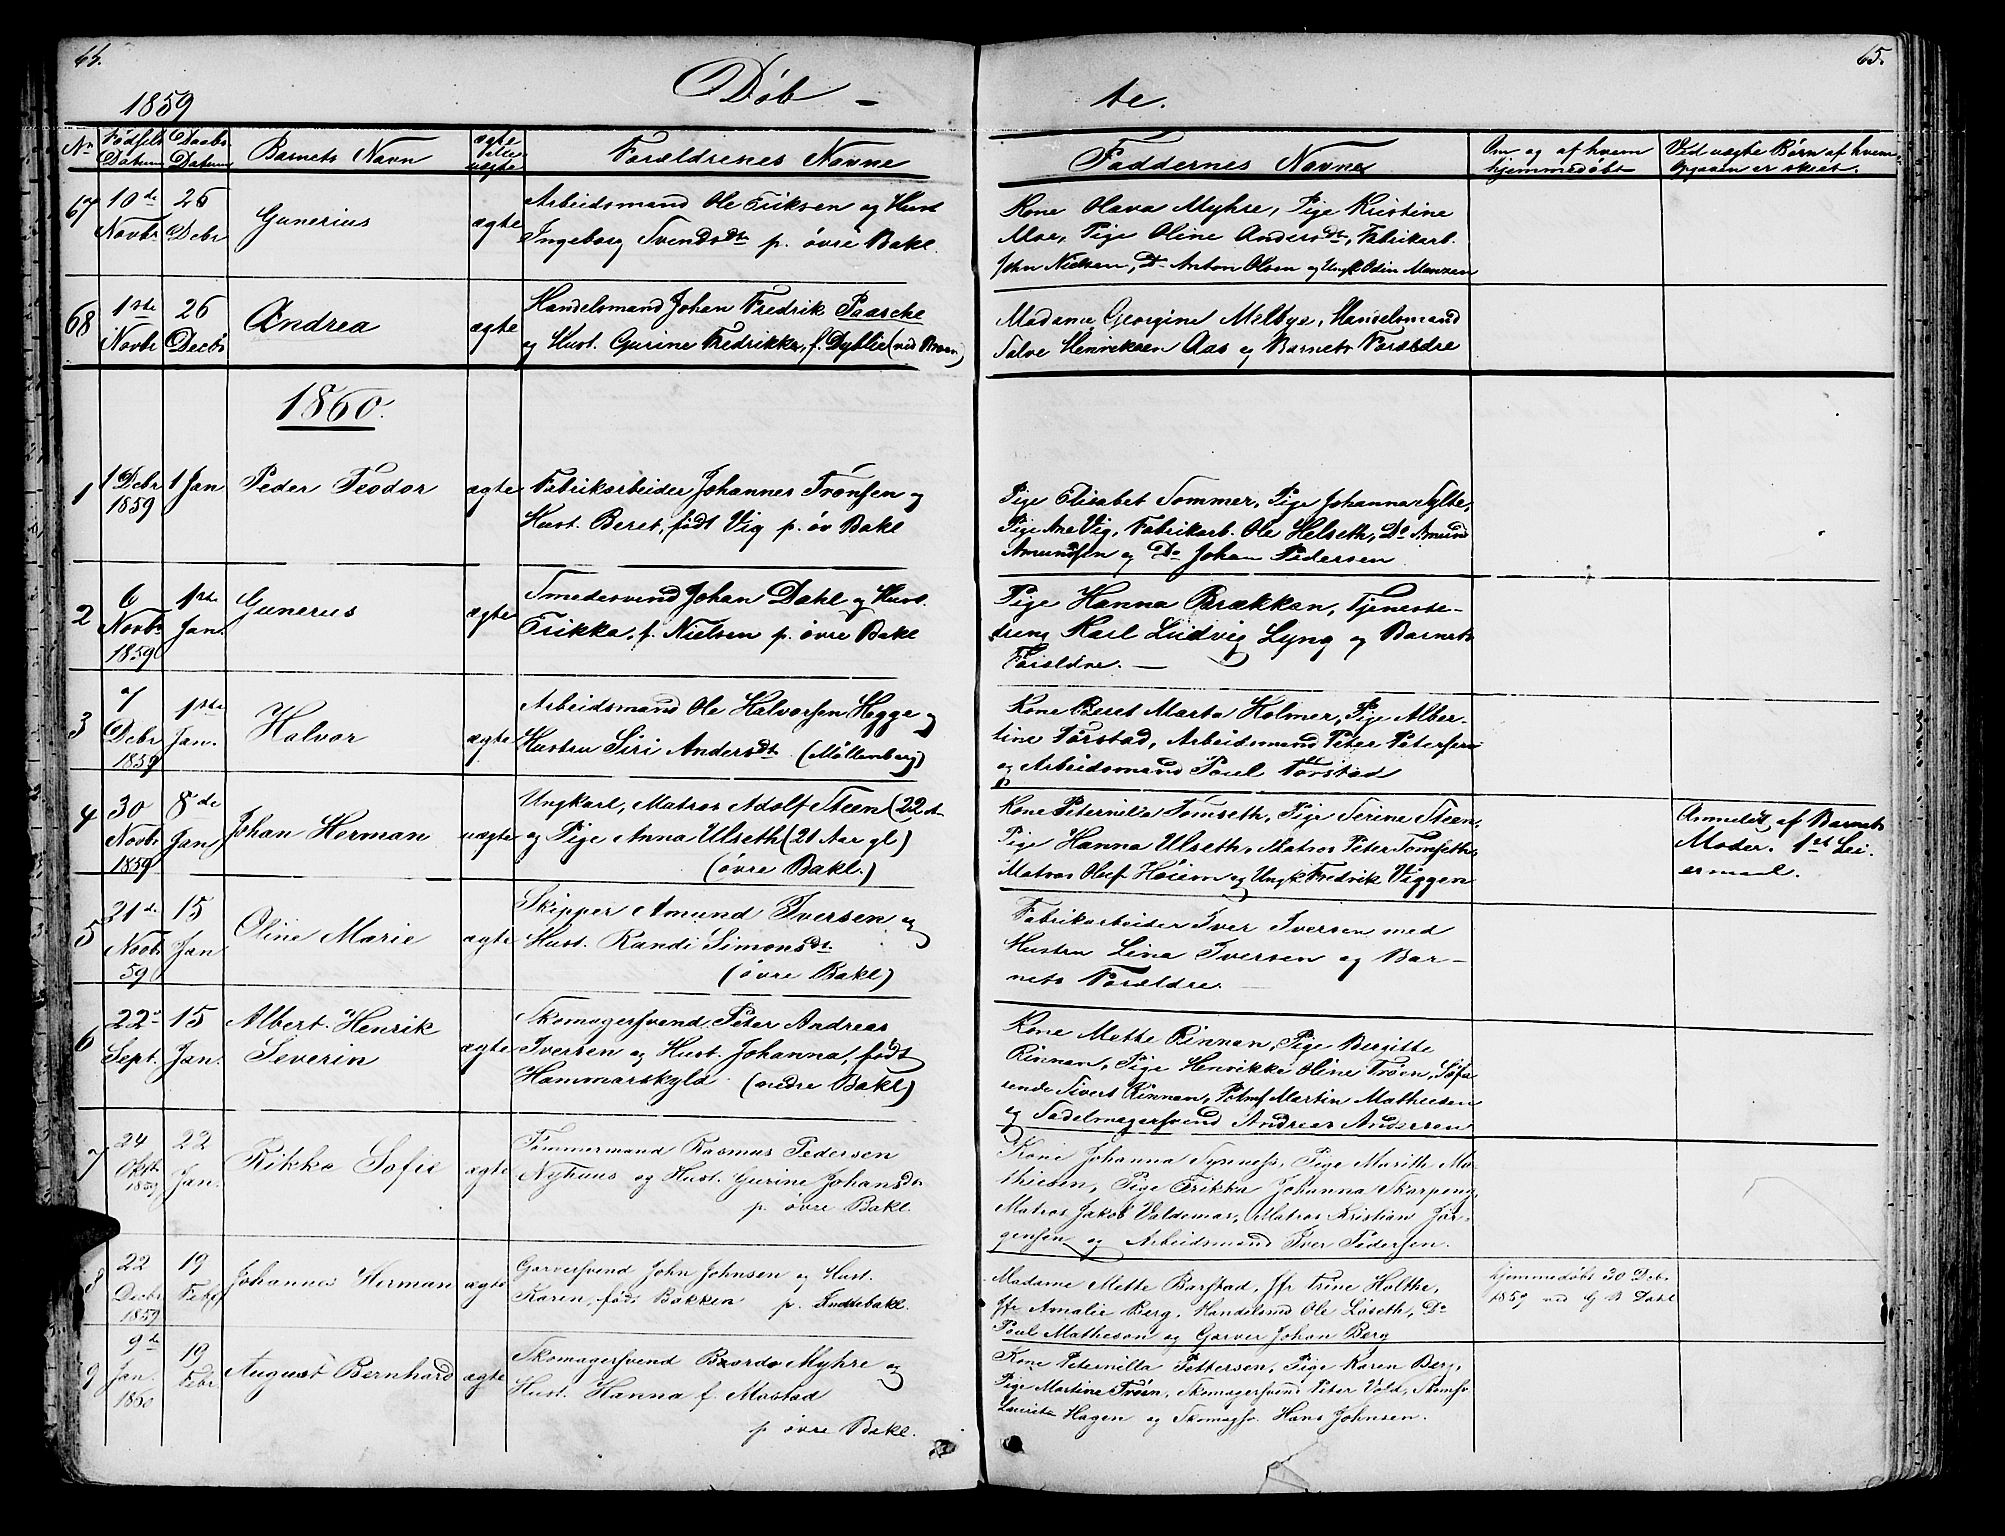 65.
1859
Døb-
te.
Nr. Fødsels Datum Daabs Datum Barnets Navn ægte eller uægte Forældrenes Navne Faddernes Navne Om og af hvem hjemmedøbt Ved uægte Børn af hvem Opgaven er skeet.
67 10de Novbr 26 Debr Gunerius ægte Arbeidsmand Ole Eriksen og Hust.
Ingeborg Svendsdtr p. øvre Bakl.
Kone Olava Myhre, Pige Kristine
Moe, Pige Oline Andersdt, Fabrikarb.
John Nielsen, Do Anton Olsen og Ungk Odin Monsen
68 1ste Novbr 26 Decbr Andrea ægte Handelsmand Johan Fredrik Paasche
og Hust. Gurine Fredrikke, f. Dyblie (ved Broen)
Madame Georgine Melbye, Handelsmand
Salve Henriksen Aas og Barnets Forældre
1860.
1 1 Debr 1859 1 Jan Peder Teodor ægte Fabrikarbeider Johannes Trønsen og
Hust. Beret, født Vig p. øv Bakl
Pige Elisabet Sommer, Pige Johanna Sylte,
Pige Ane Vig, Fabrikarb. Ole Helseth, Do Amund
Amundsen og Do Johan Pedersen
2 6 Novbr 1859 1ste Jan. Gunerus ægte Smedesvend Johan Dahl og Hust.
Erikka, f. Nielsen p. øvre Bakl
Pige Hanna Brækkan, Tjeneste-
dreng Karl Ludvig Lyng og Barnets
Forældre. —
3 7 Debr 1859 1ste Jan. Halvor ægte Arbeidsmand Ole Halvorsen Hegge og
Hustru Siri Andersdt. (Møllenberg)
Kone Beret Marta Holmer, Pige Alber-
tine Vorstad, Arbeidsmand Peter Petersen
og Arbeidsmand Poul Vorstad
4 30 Novbr 1859 8de Jan Johan Herman uægte Ungkarl, Matros Adolf Steen (22
og Pige Anna Ulseth (21 Aar gl)
(øvre Bakl.)
Kone Peternilla Tomseth, Pige Serine Steen,
Pige Hanna Ulseth, Matros Peter Tomseth,
Matros Oluf Høiem og Ungk Fredrik Viggen
Anmeldt af Barnets
Moder. 1ste Lei-
ermaal.
5 21de Novbr 59 15 Jan Oline Marie ægte Skipper Amund Iversen og
Hust. Randi Simonsdt.
(øvre Bakl)
Fabrikarbeider Iver Iversen med
Hustru Lina Iversen og Bar-
nets Forældre.
6 22de Sept. 15 Jan. Albert Henrik
Severin ægte Skomagersvend Peter Andreas
Iversen og Hust. Johanna, født
Hammarskyld. (nedre Bakl)
Kone Mette Rinnan, Pige Bergitte
Rinnan, Pige Henrikke Oline Trøen, Søfa-
rende Sivert Rinnan, Martin Mathiesen
og Sadelmagersvend Andreas Andersen
7 24 Oktb. 1859 22 Jan. Rikka Sofie ægte Tømmermand Rasmus Pedersen
Nyhuus og Hust. Gurine Johansdt
p. øvre Bakl.
Kone Johanna Synness, Pige Marith Ma-
thiesen, Pige Erikka Johanna Skarpeng,
Matros Jakob Valdemar, Matros Kristian Jør-
gensen og Arbeidsmand Iver Pedersen.
8 22 Decbr 1859 19 Feb. Johannes Herman ægte Garversvend John Johnsen og Hust.
Karen, født Bakken p. Indrebakl.
Madame Mette Barstad, Jfr Trine Holthe,
Jfr Amalie Berg, Handelsmd Ole Løseth, Do
Poul Matheson og Garver Johan Berg
hjemmedøbt 30 Debr
1859 ved G B Dahl
9 9de Jan. 1860 19 Febr August Bernhard ægte Skomagersvend Baardo Myhre og
Hust. Hanna f. Mostad
p. øvre Bakl.
Kone Peternilla Pettersen, Pige Karen Berg,
Pige Martine Trøen, Skomagersvend Peter Vold, Skomsv.
Laurits Hagen og Skomagsv. Hans Johnsen.